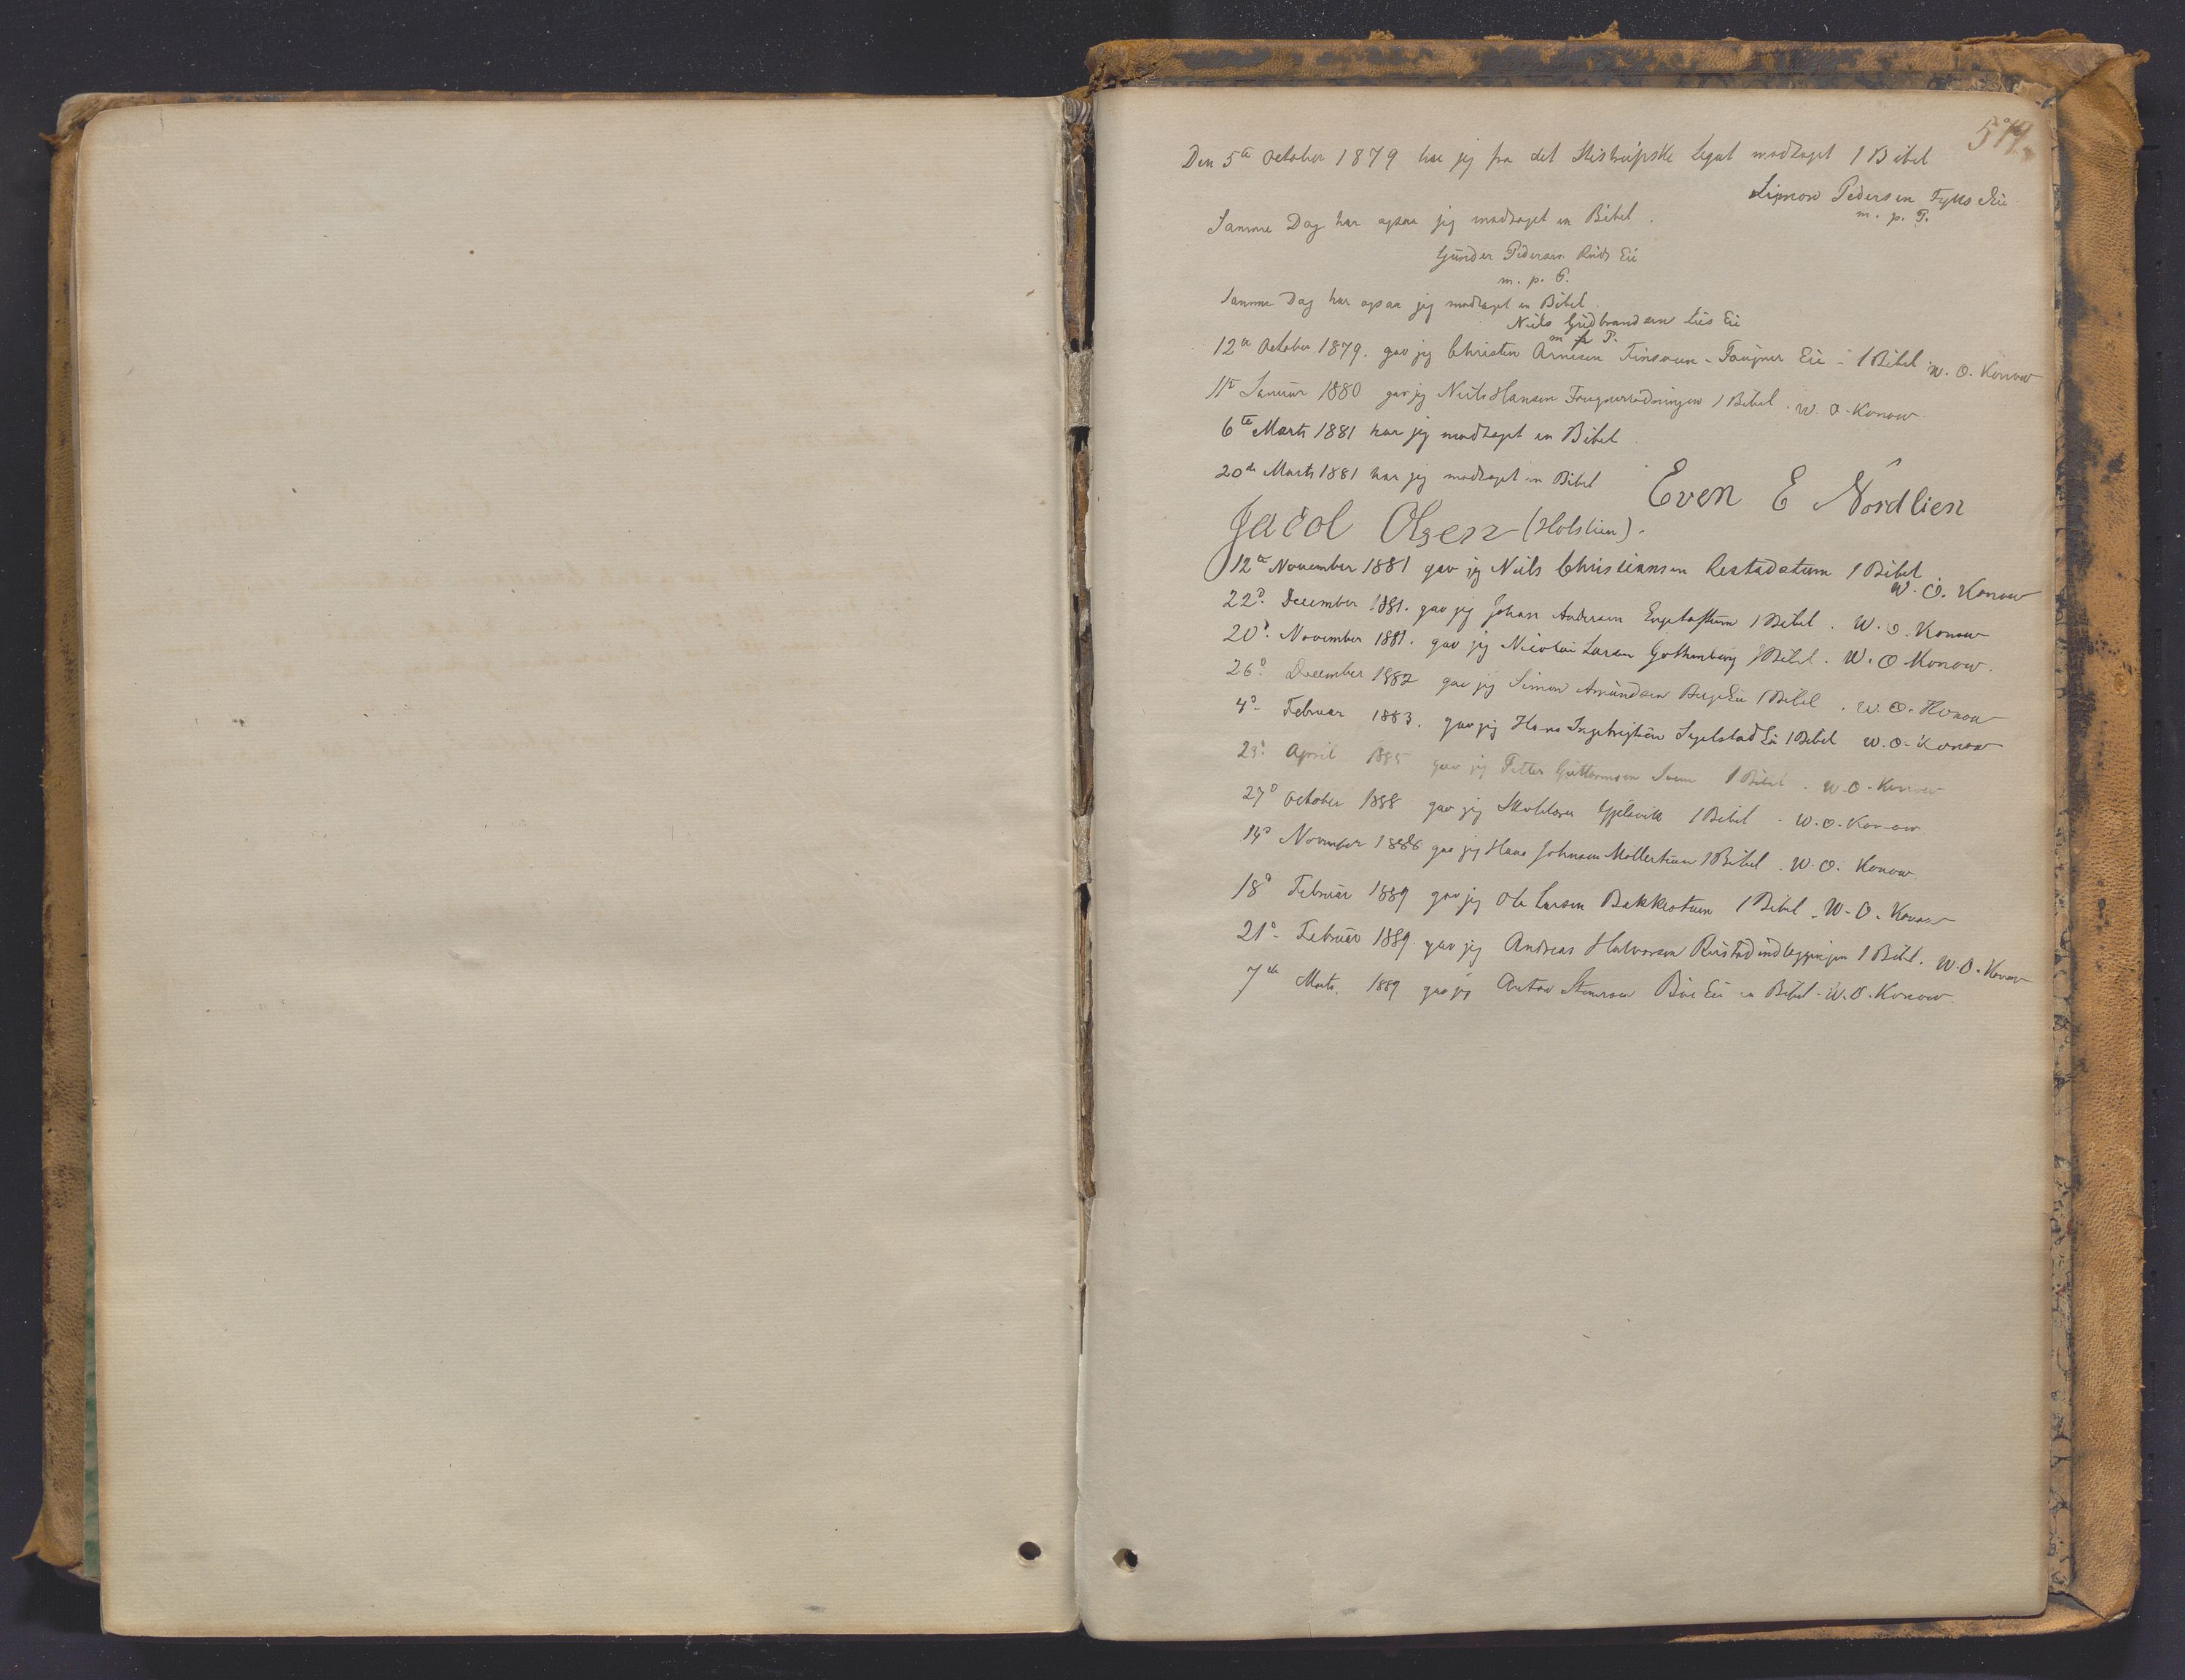 579.
Den 5te October 1879 har jeg fra det Histrüpske Legat modtaget 1 Bibel
Simon Pedersen Fylls Eie
m. p. P.
Samme Dag har ogsaa jeg modtaget en Bibel.
Günder Pedersen Ruds Eie
m. p. P.
Samme Dag har ogsaa jeg modtaget en Bibel.
Niels Gudbrandsen Lies Eie
m p P.
12te October 1879. gav jeg Christen Arnesen Finstuen - Faugner Eie - 1 Bibel. W. O. Konow
11te Januar 1880 gav jeg Niels Hansen Faugnerrødningen 1 Bibel. W. O. Konow.
6te Marts 1881 har jeg modtaget en Bibel.
Even E Nordlien
20de Marts 1881 har jeg modtaget en Bibel
Jacob Olsen (Holstuen).
12te November 1881 gav jeg Niels Christiansen 1 Bibel
W. O. Konow
22d. December 1881. gav jeg Johan Andersen 1 Bibel. W. O. Konow
20d. November 1881. gav jeg Nicolai Larsen Gothenborg 1 Bibel. W. O. Konow.
26d. December 1882 gav jeg Simon Amundsen Berge Eie 1 Bibel. W. O. Konow
4d. Februar 1883. gav jeg Hans Ingebrigtsen Eie 1 Bibel W. O. Konow
23d. April 1885 gav jeg Petter Guttormsen 1 Bibel. W. O. Konow
27d October 1888 gav jeg Gjelsvik 1 Bibel. W. O. Konow
14d November 1888 gav jeg Hans Johnsen Møllerstuen 1 Bibel. W. O. Konow.
18d Februar 1889 gav jeg Ole Larsen Bakkestuen 1 Bibel. W. O. Konow
21d. Februar 1889. gav jeg Andreas Halvorsen 1 Bibel. W. O. Konow
7de Marts. 1889 gav jeg Anton Eie en Bibel. W. O. Konow.